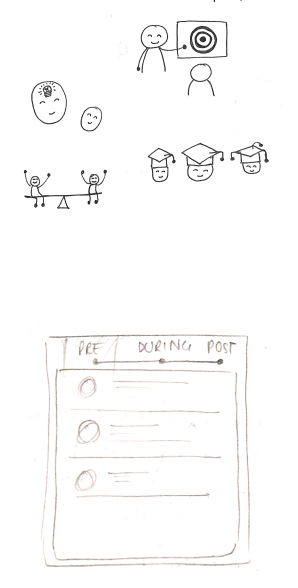 PRE DURING POST